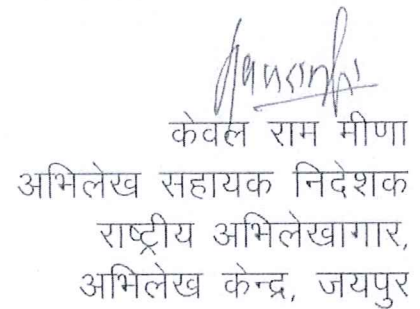 केवल राम मीणा
अभिलेख सहायक निदेशक
राष्ट्रीय अभिलेखागार,
अभिलेख केन्द्र, जयपुर